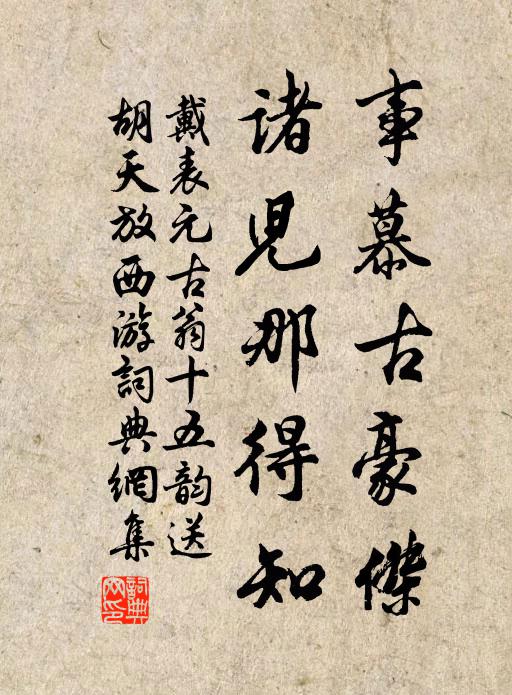 事慕古豪傑
諸児那得知
戴表元古翁十五韵送
胡天放西游詞典網集
詞典網印